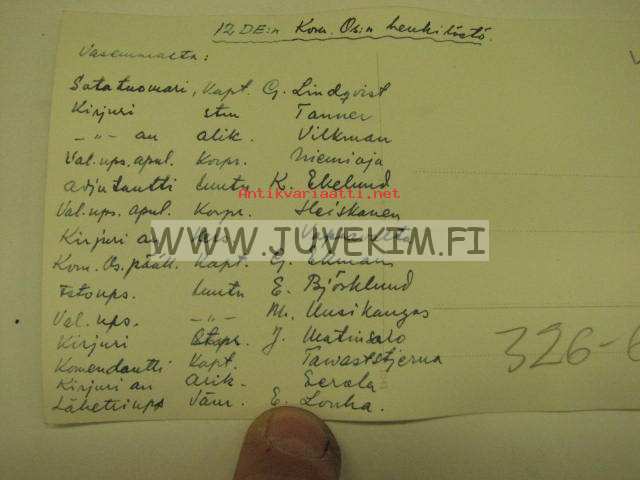 12 DE:n Kom. Os:n henkilöstö.
Vasemmalta:
Sotatuomari, Kapt. G. Lindqvist
Kirjuri stm Tanner
-"- au alik. Vilkman
Val. ups. apul. Korpr. Niemioja
Adjutantti luutn K. Ekelund
Antikvariaatti.net
Val. ups. apul. Korpr. Heiskanen
Kirjuri au
WWW.JUVEKIM.FI
Kom. Os. pääll. Kapt. G. Ekman
luutn E. Björklund
Val. ups. -"- M. Uusikangas
Kirjuri J.
Komendantti Kapt. Tawaststjerna
Kirjuri au Alik. Eerola
Lähettiups Vänr. E. Louha.
326-6